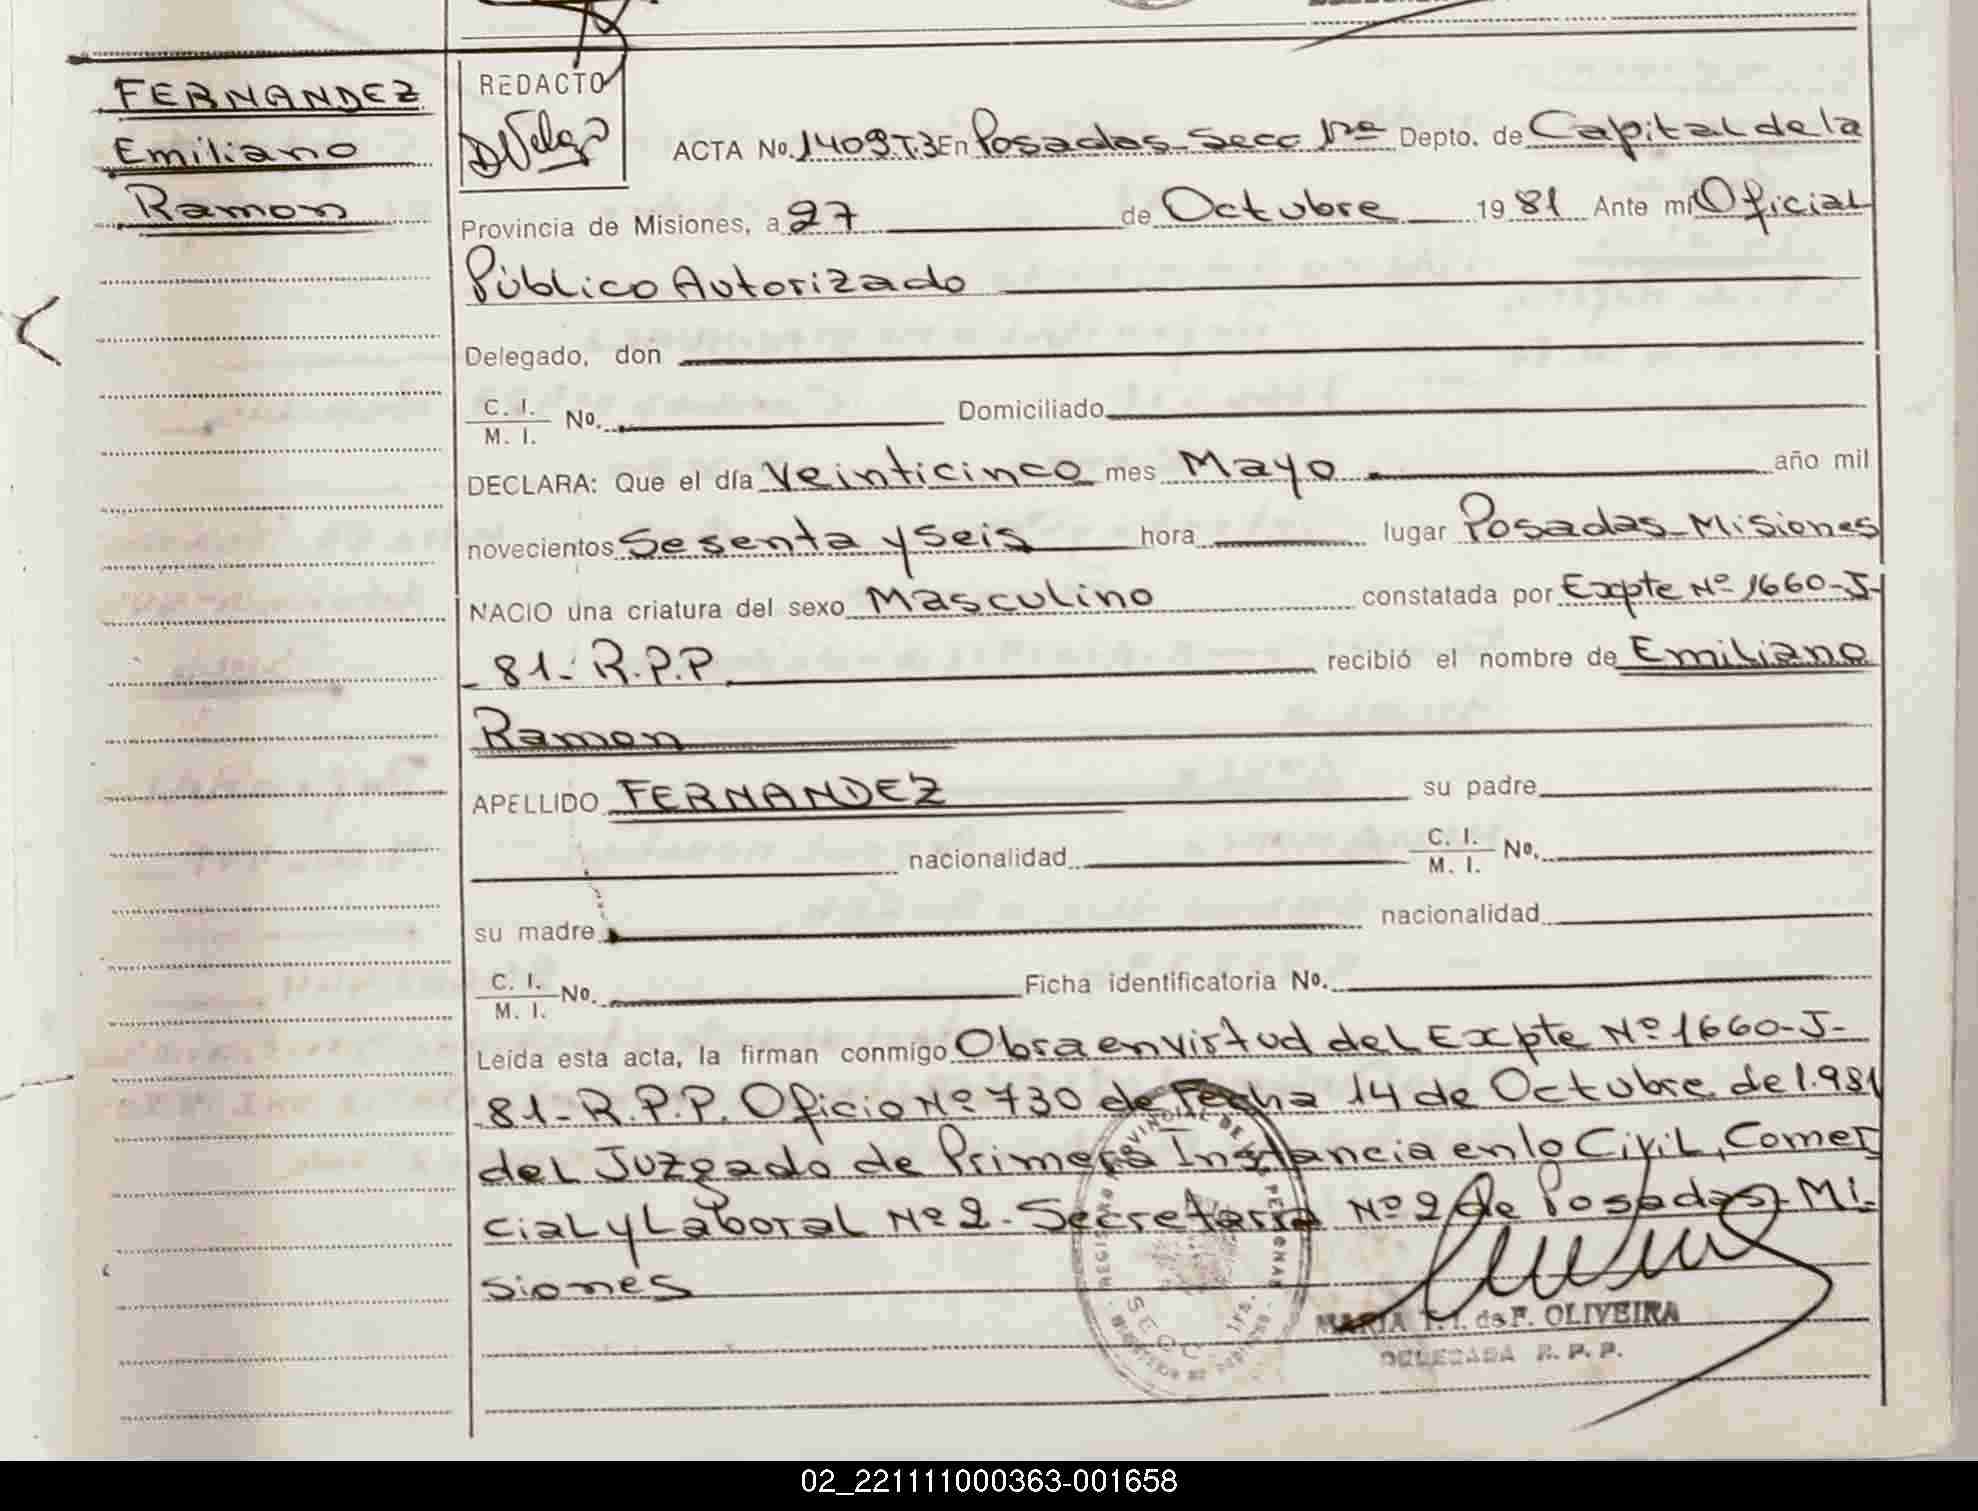 FERNANDEZ
Emiliano
Ramon
REDACTO
ACTA No. 1409 T.3 En Posadas - Secc 1ra Depto. de Capital de la
Provincia de Misiones, a 27 de Octubre 1981 Ante mi Oficial
Público Autorizado
Delegado, don
C. I.
M. I. No. Domiciliado
DECLARA: Que el día Veinticinco mes Mayo año mil
novecientos Sesenta y Seis hora lugar Posadas - Misiones
NACIO una criatura del sexo Masculino constatada por Expte Nº 1660-J-
- 81 - R.P.P. recibió el nombre de Emiliano
Ramon
APELLIDO FERNANDEZ su padre
nacionalidad C. I.
M. I. No.
su madre nacionalidad
C. I.
M. I. No. Ficha identificatoria No.
Leída esta acta, la firman conmigo Obra en virtud del Expte Nº 1660-J-
81 - R.P.P. Oficio Nº 730 de Fecha 14 de Octubre de 1.981
del Juzgado de Primera Instancia en lo Civil, Comer
cial y Laboral Nº 2 - Secretaria Nº 2 de Posadas - Mi-
siones
REGISTRO PROVINCIAL DE LAS PERSONAS
SECC. 1ra.
MARIA T. I. de F. OLIVEIRA
DELEGADA R. P. P.
02_221111000363-001658